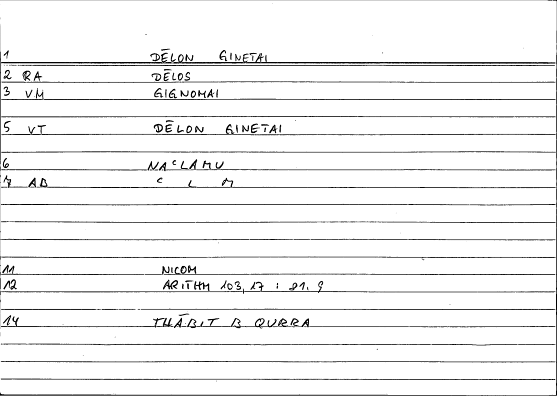 1 DĒLON GINETAI
2 RA DĒLOS
3 VM GIGNOMAI
5 VT DĒLON GINETAI
6 NAᶜLAMU
7 AB ᶜ L M
11 NICOM
12 ARITHM 103,17 : 81.9
14 THĀBIT B QURRA